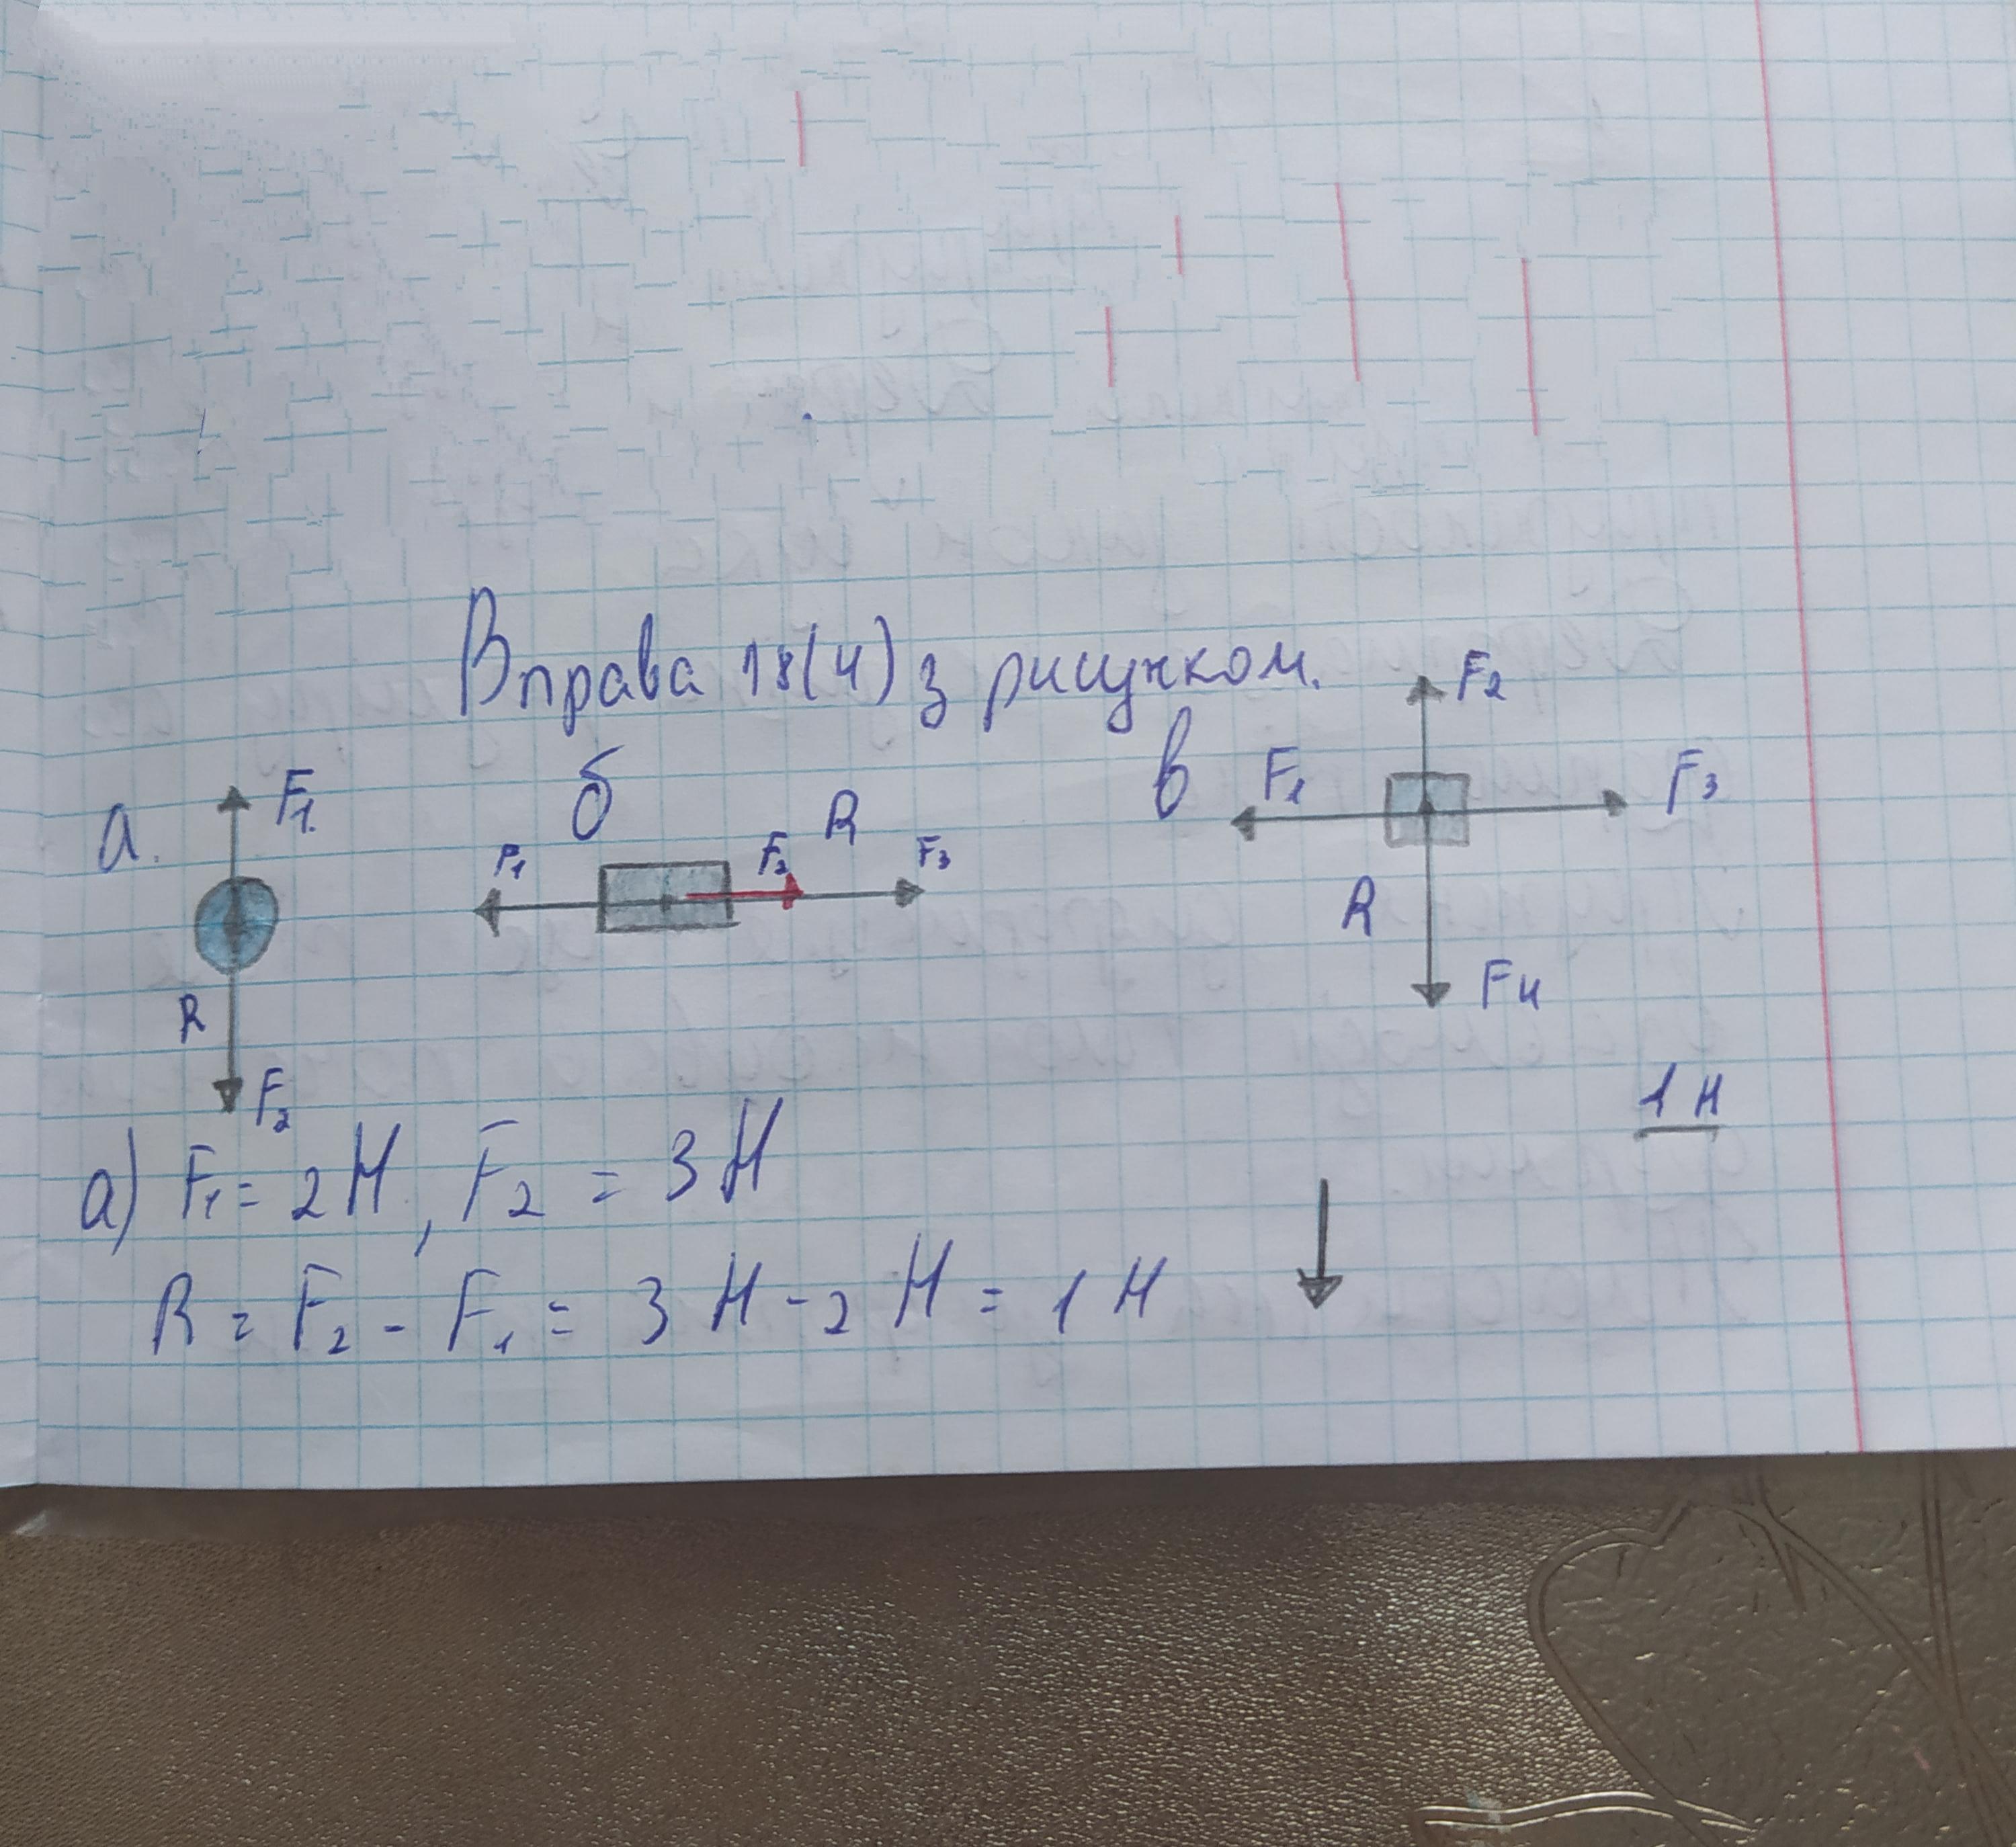 Вправа 18(4) з рисунком.
а. F₁ R F₂
б F₁ F₂ R F₃
в F₁ F₂ F₃ R F₄
1 Н
а) F₁ = 2 Н, F₂ = 3 Н
R = F₂ - F₁ = 3 Н - 2 Н = 1 Н